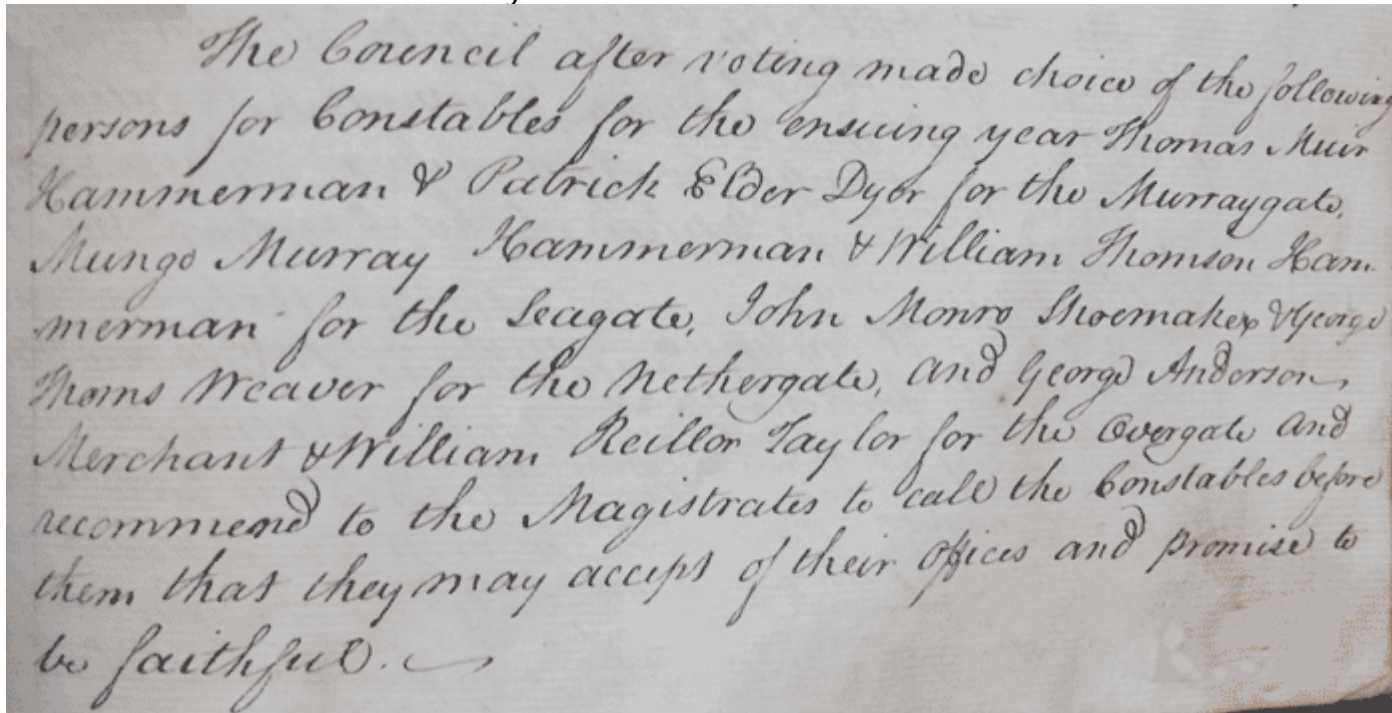 The Council after voting made choice of the following
persons for Constables for the ensuing year Thomas Muir
Hammerman & Patrick Elder Dyer for the Murraygate,
Mungo Murray Hammerman & William Thomson Ham-
merman for the Seagate, John Monro Shoemaker & George
Thoms Weaver for the Nethergate, and George Anderson
Merchant & William Reillor Taylor for the Overgate and
recommend to the Magistrates to call the Constables before
them that they may accept of their offices and promise to
be faithful.